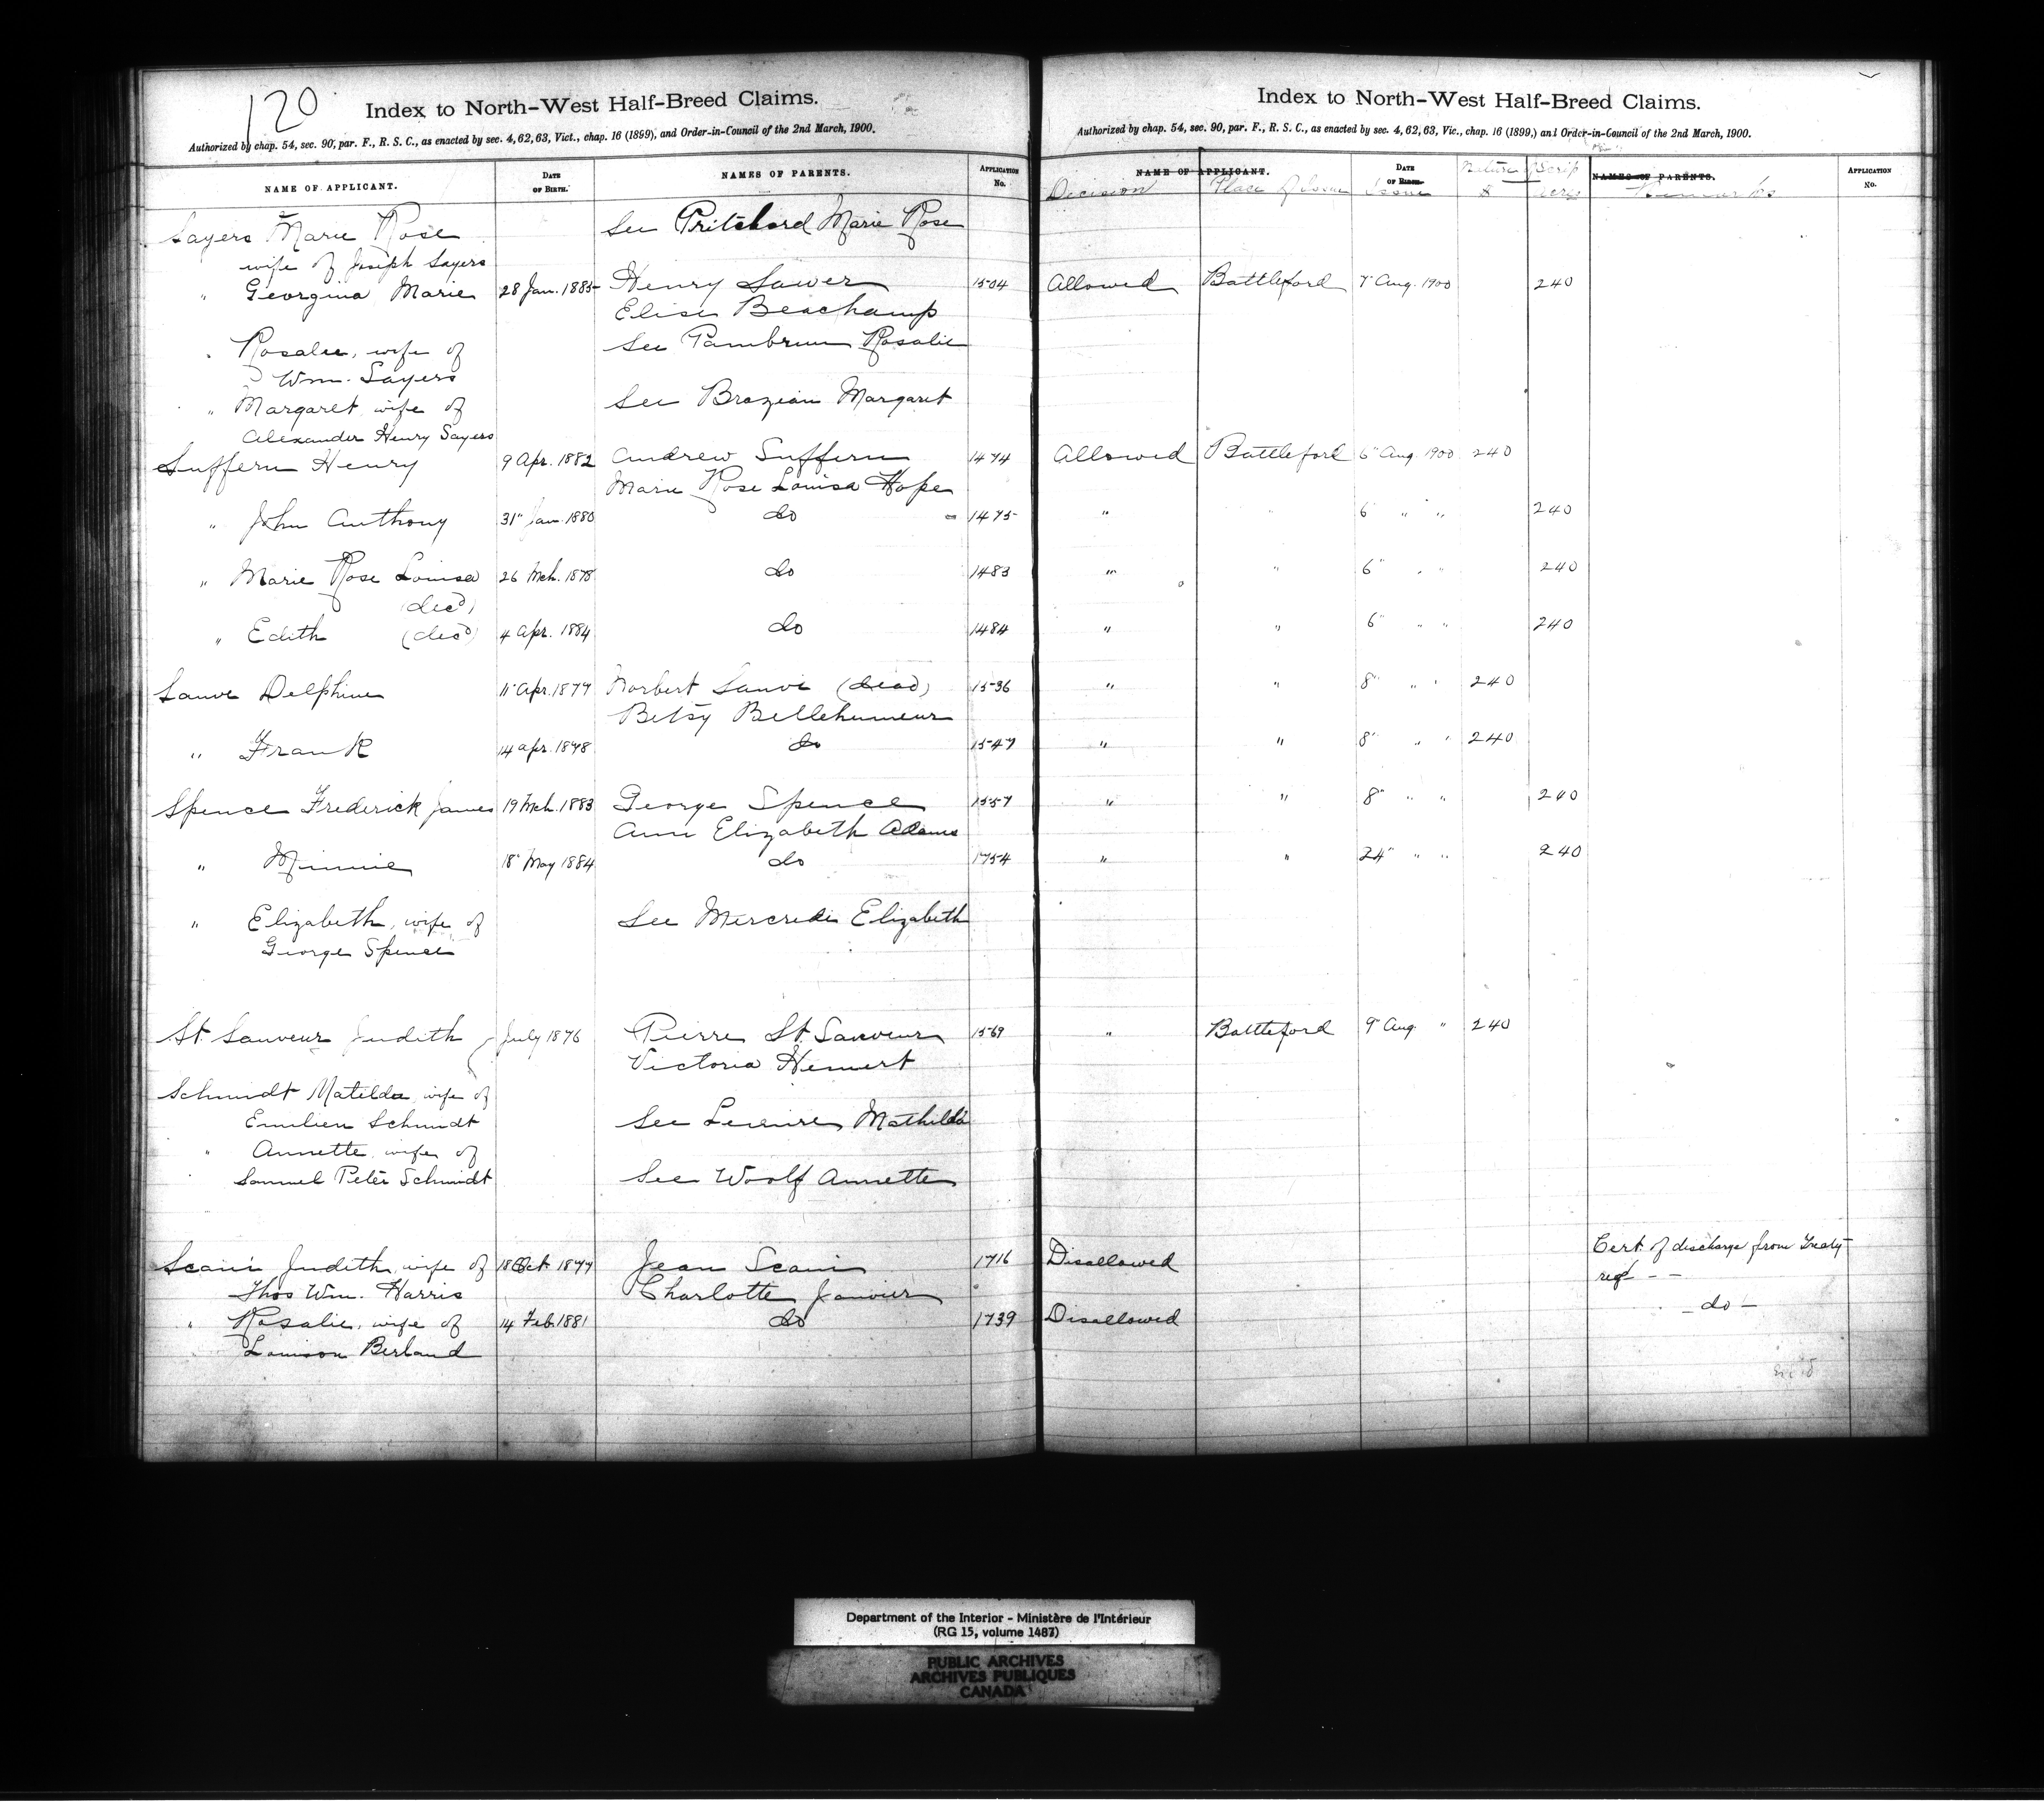 120
Index to North-West Half-Breed Claims.
Authorized by chap. 54, sec. 90, par. F., R. S. C., as enacted by sec. 4, 62, 63, Vict., chap. 16 (1899), and Order-in-Council of the 2nd March, 1900.
NAME OF APPLICANT. DATE OF BIRTH. NAMES OF PARENTS. APPLICATION No.
Index to North-West Half-Breed Claims.
Authorized by chap. 54, sec. 90, par. F., R. S. C., as enacted by sec. 4, 62, 63, Vic., chap. 16 (1899,) and Order-in-Council of the 2nd March, 1900.
NAME OF APPLICANT. DATE OF BIRTH. NAMES OF PARENTS. APPLICATION No.
Decision Place of Issue Issue Nature of Scrip $ acres Remarks
Sayers Marie Rose See Pritchard Marie Rose
wife of Joseph Sayers
" Georgina Marie 28 Jan. 1885 Henry Sawer 1504 Allowed Battleford 7" Aug. 1900 240
Elise Beachamp
" Rosalie, wife of See Pambrun Rosalie
Wm. Sayers
" Margaret wife of See Brazeau Margaret
Alexander Henry Sayers
Suffern Henry 9 Apr. 1882 Andrew Suffern 1474 Allowed Battleford 6" Aug. 1900 240
Marie Rose Louisa Hope
" John Anthony 31" Jan. 1880 do 1475 " " 6 " " 240
" Marie Rose Louisa 26 Mch. 1878 do 1483 " " 6" " " 240
(dec'd)
" Edith (dec'd) 4 Apr. 1884 do 1484 " " 6" " " 240
Sauve Delphine 11" Apr. 1877 Norbert Sauve (dead) 1536 " " 8" " " 240
Betsy Bellehumeur
" Frank 14 Apr. 1878 do 1547 " " 8" " " 240
Spence Frederick James 19 Mch. 1883 George Spence 1557 " " 8" " " 240
Ann Elizabeth Adams
" Minnie 18" May 1884 do 1754 " " 24" " " 240
" Elizabeth, wife of See Mercredi Elizabeth
George Spence
St. Sauveur Judith July 1876 Pierre St. Sauveur 1569 " Battleford 9" Aug. " 240
Victoria Hemert
Schmidt Matilda wife of
Emilien Schmidt See Mathilda
" Annette wife of
Samuel Peter Schmidt See Woolf Annette
Cert. of discharge from Treaty
Scani Judith, wife of 18 Oct 1877 Jean Scani 1716 Disallowed reqd - -
Thos Wm. Harris Charlotte Janvier
" Rosalie, wife of 14 Feb. 1881 do 1739 Disallowed - do -
Louison Berland
Department of the Interior - Ministère de l'Intérieur
(RG 15, volume 1487)
PUBLIC ARCHIVES
ARCHIVES PUBLIQUES
CANADA